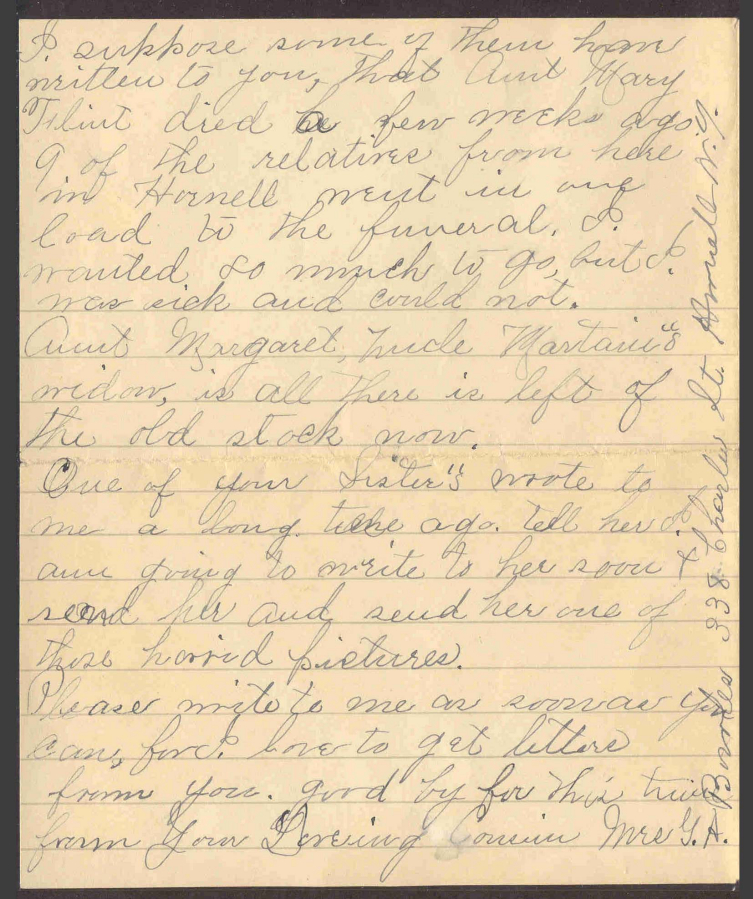 I. suppose some of them have
written to you, that Aunt Mary
Flint died a few weeks ago
9 of the relatives from here
in Hornell went in one
load to the funeral. I.
wanted so much to go, but I.
was sick and could not.
Aunt Margaret, Uncle Martain"s
widow, is all there is left of
the old stock now.
One of your Sister"s wrote to
me a long time ago. tell her I.
am going to write to her soon &
send her and send her one of
those horrid pictures.
Please write to me as soon as you
can, for I. love to get letters
from you. good by for this time
from Your Loveing Cousin Mrs G. A.
Bowles 338 Charles St. Hornell N.Y.